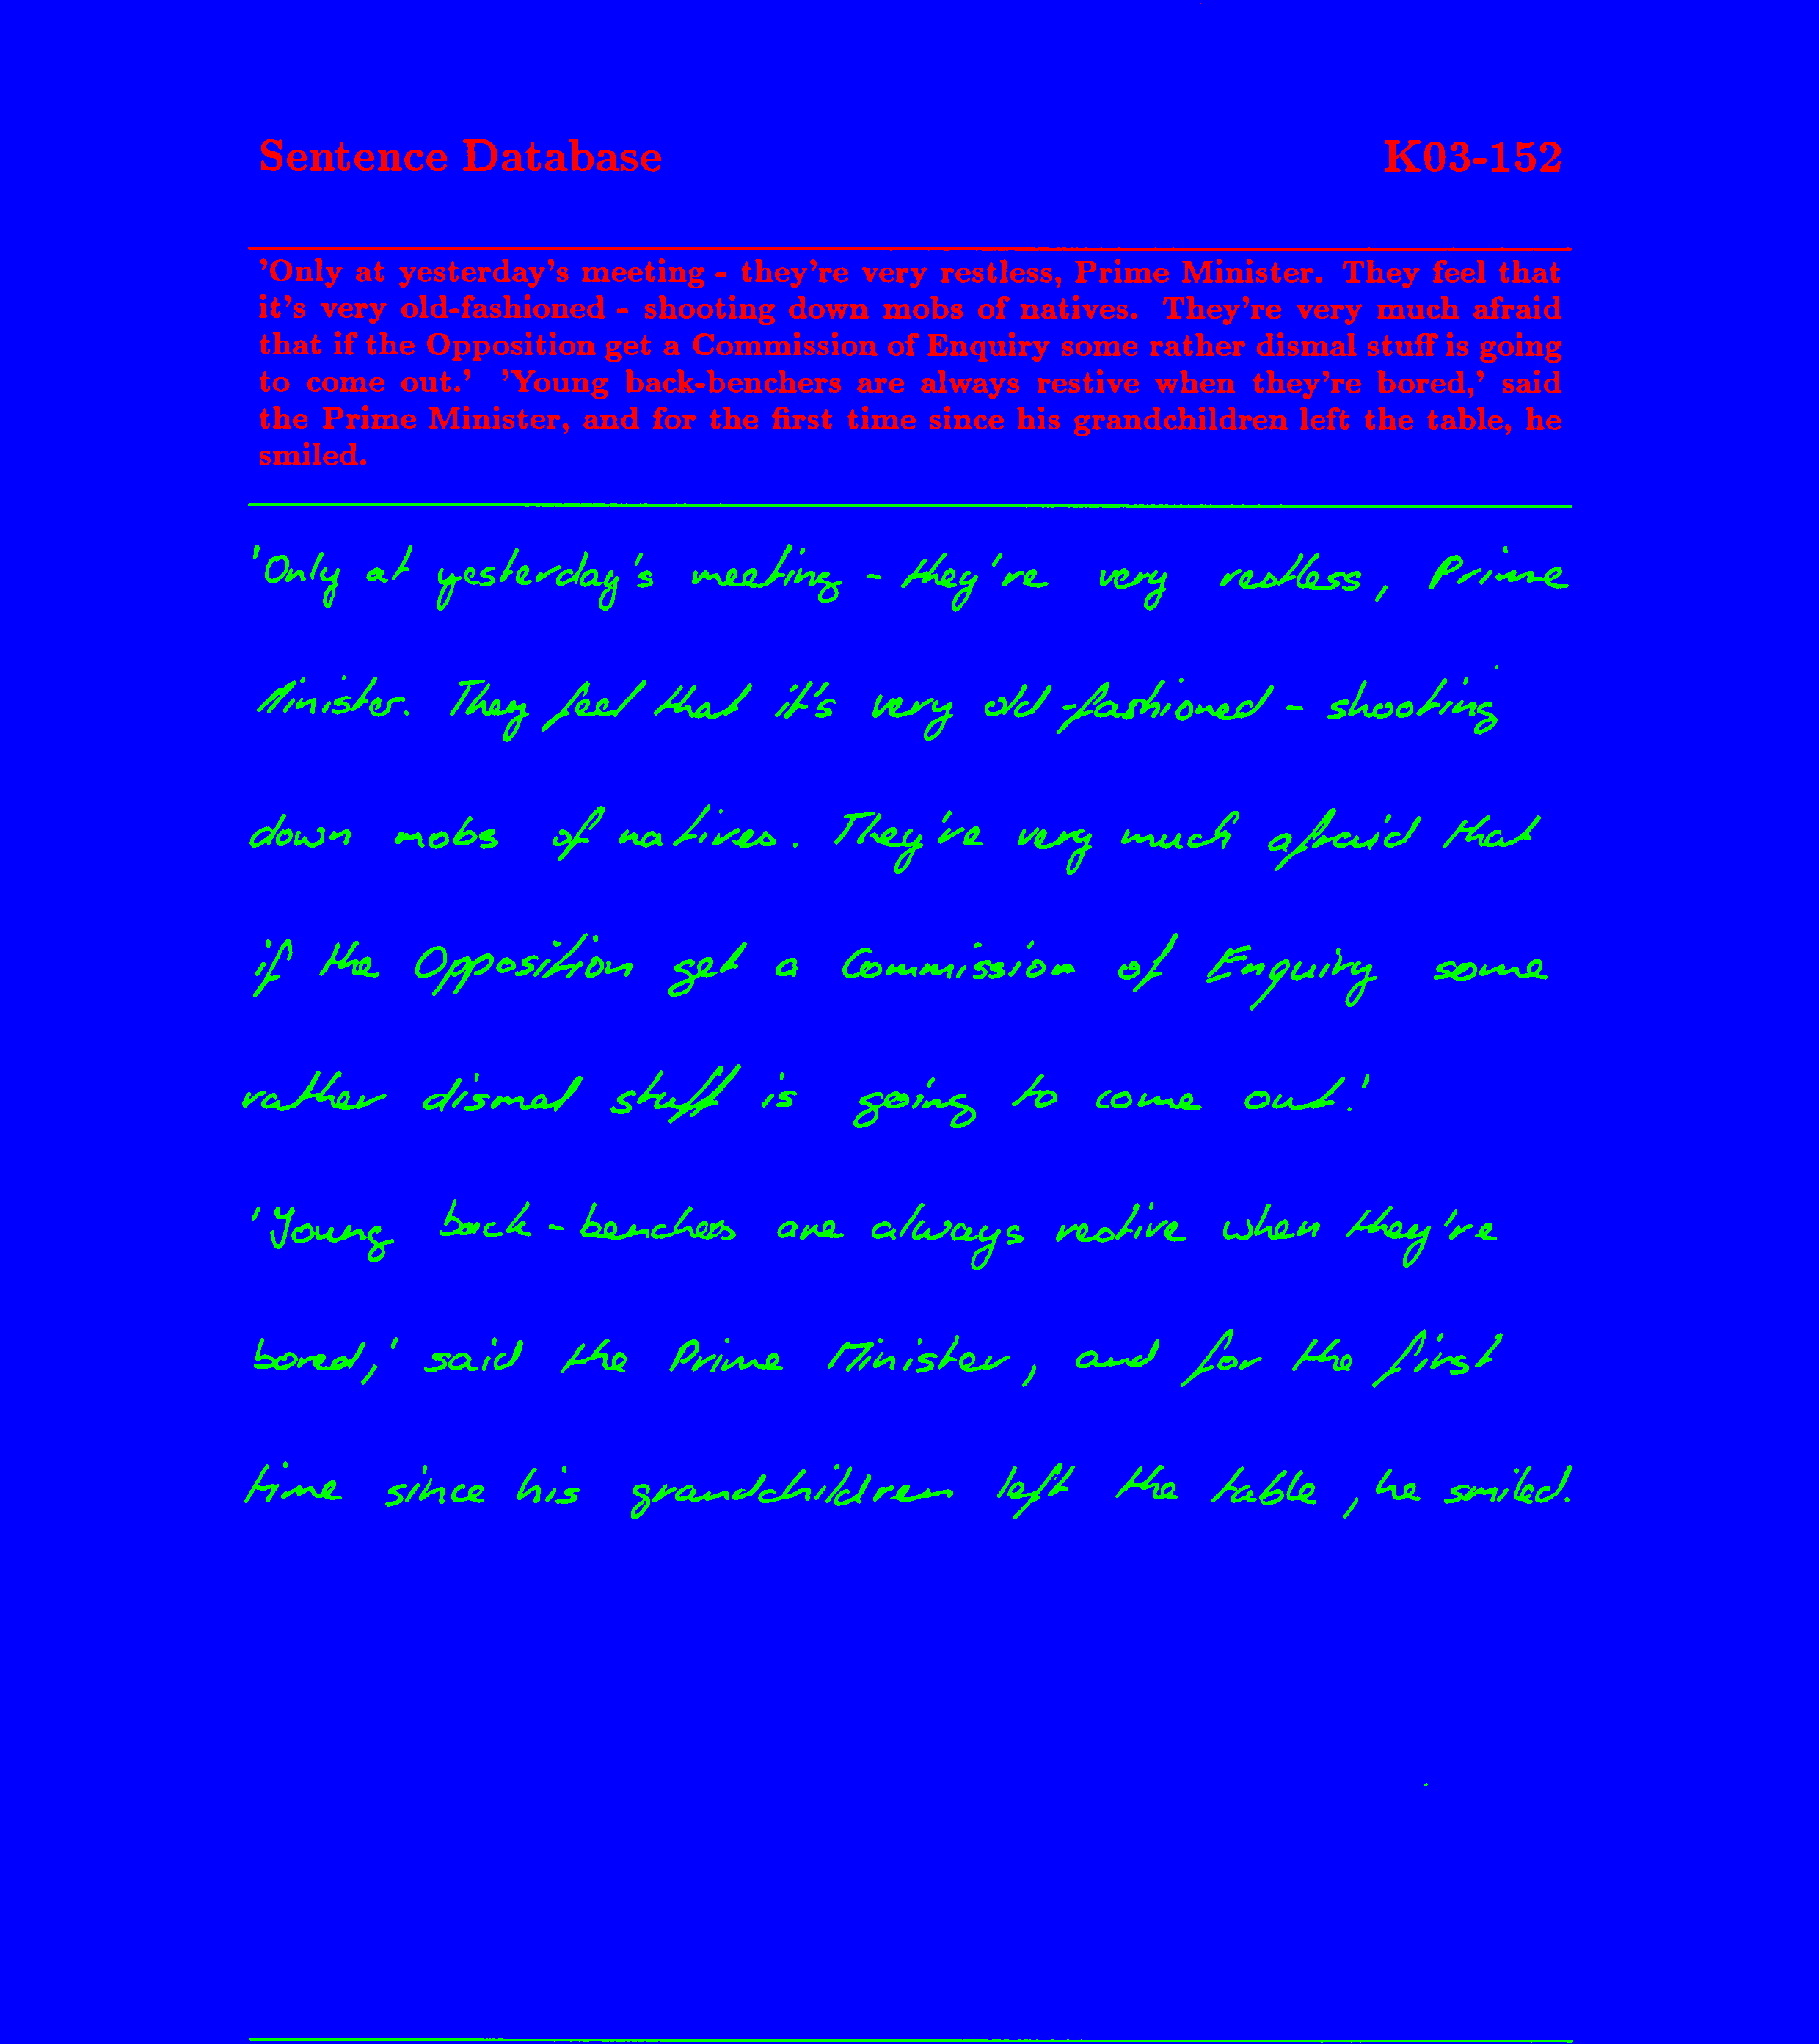 Sentence Database K03-152
'Only at yesterday's meeting - they're very restless, Prime Minister. They feel that
it's very old-fashioned - shooting down mobs of natives. They're very much afraid
that if the Opposition get a Commission of Enquiry some rather dismal stuff is going
to come out.' 'Young back-benchers are always restive when they're bored,' said
the Prime Minister, and for the first time since his grandchildren left the table, he
smiled.
'Only at yesterday's meeting - they're very restless, Prime
Minister. They feel that it's very old-fashioned - shooting
down mobs of natives. They're very much afraid that
if the Opposition get a Commission of Enquiry some
rather dismal stuff is going to come out.'
'Young back-benchers are always restive when they're
bored,' said the Prime Minister, and for the first
time since his grandchildren left the table, he smiled.